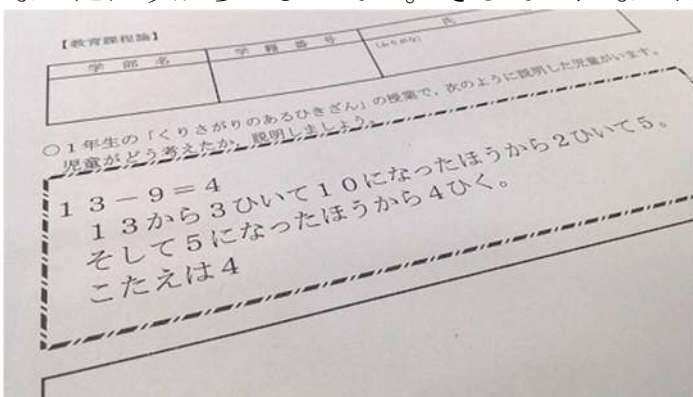 【教育課程論】
学部名 学籍番号 氏
(ふりがな)
○1年生の「くりさがりのあるひきざん」の授業で、次のように説明した児童がいます。
児童がどう考えたか、説明しましょう。
13-9=4
13から3ひいて10になったほうから2ひいて5。
そして5になったほうから4ひく。
こたえは4